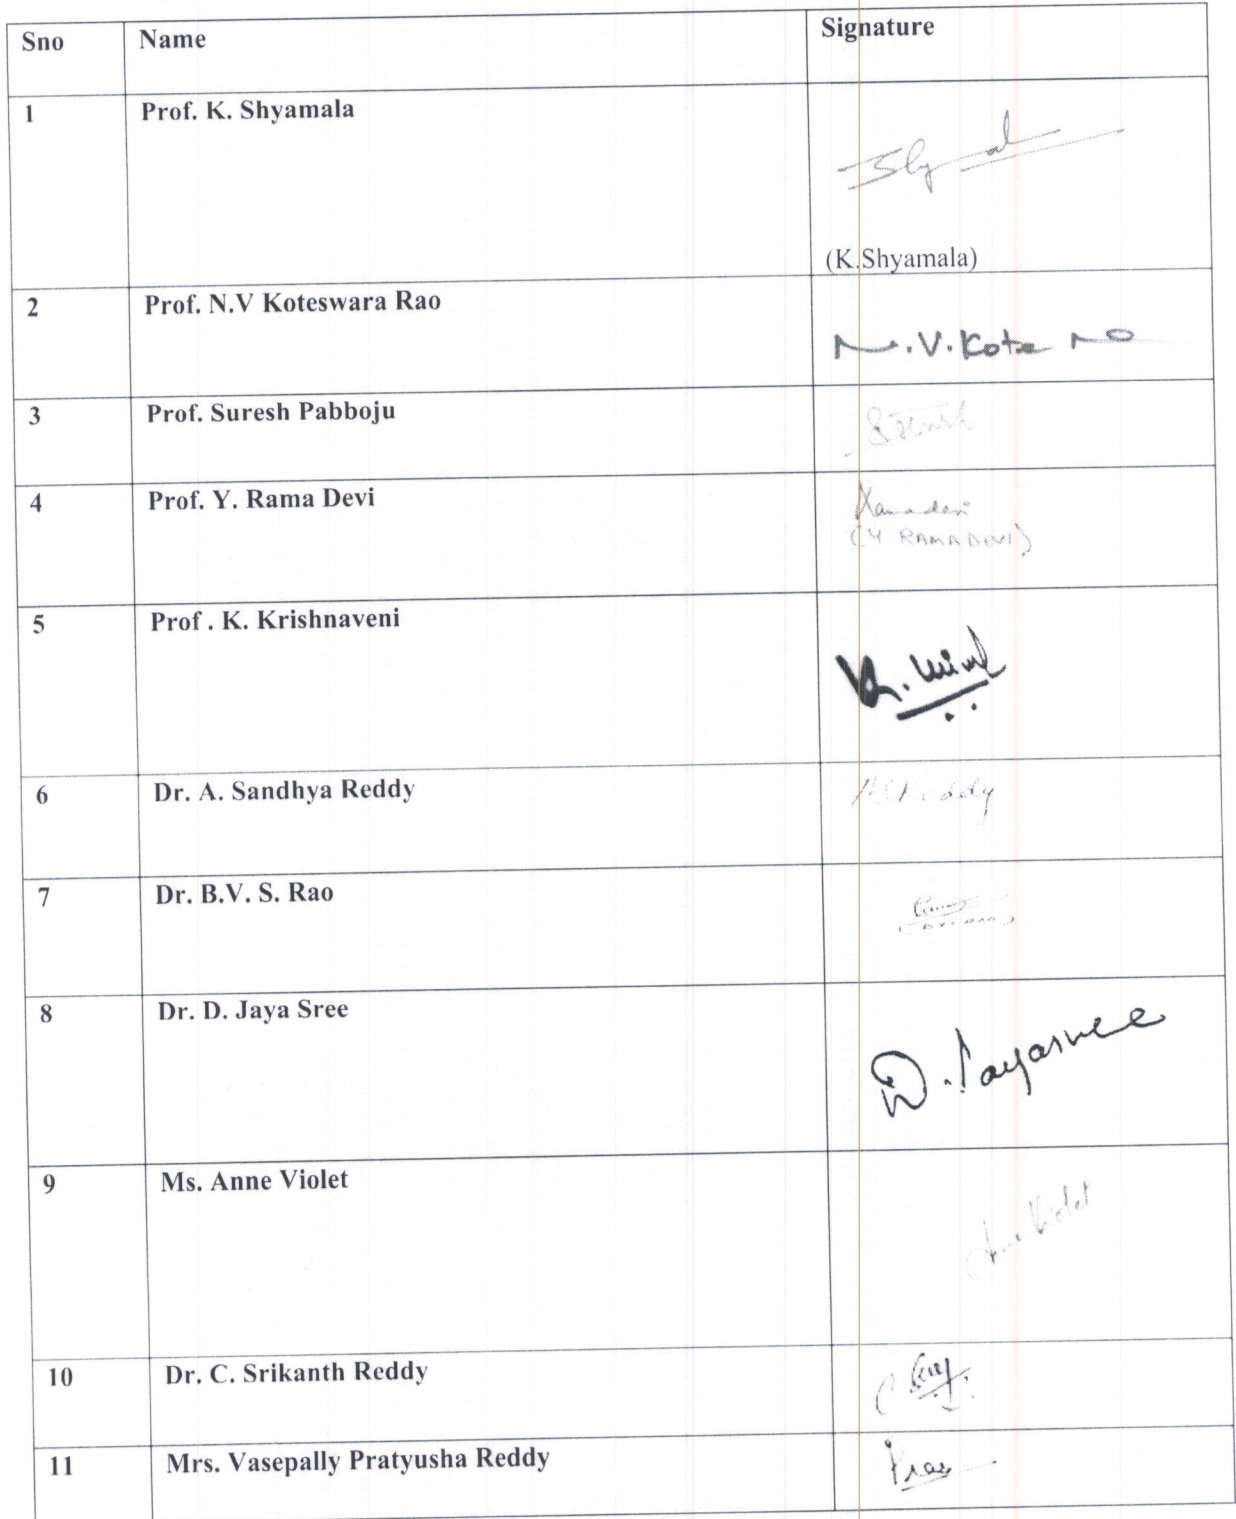 Sno Name Signature
1 Prof. K. Shyamala
(K.Shyamala)
2 Prof. N.V Koteswara Rao
N.V.Kote
3 Prof. Suresh Pabboju
4 Prof. Y. Rama Devi
Ramadevi
(Y. RAMADEVI)
5 Prof . K. Krishnaveni
6 Dr. A. Sandhya Reddy
ASReddy
7 Dr. B.V. S. Rao
8 Dr. D. Jaya Sree
D. Jayasree
9 Ms. Anne Violet
Anne Violet
10 Dr. C. Srikanth Reddy
11 Mrs. Vasepally Pratyusha Reddy